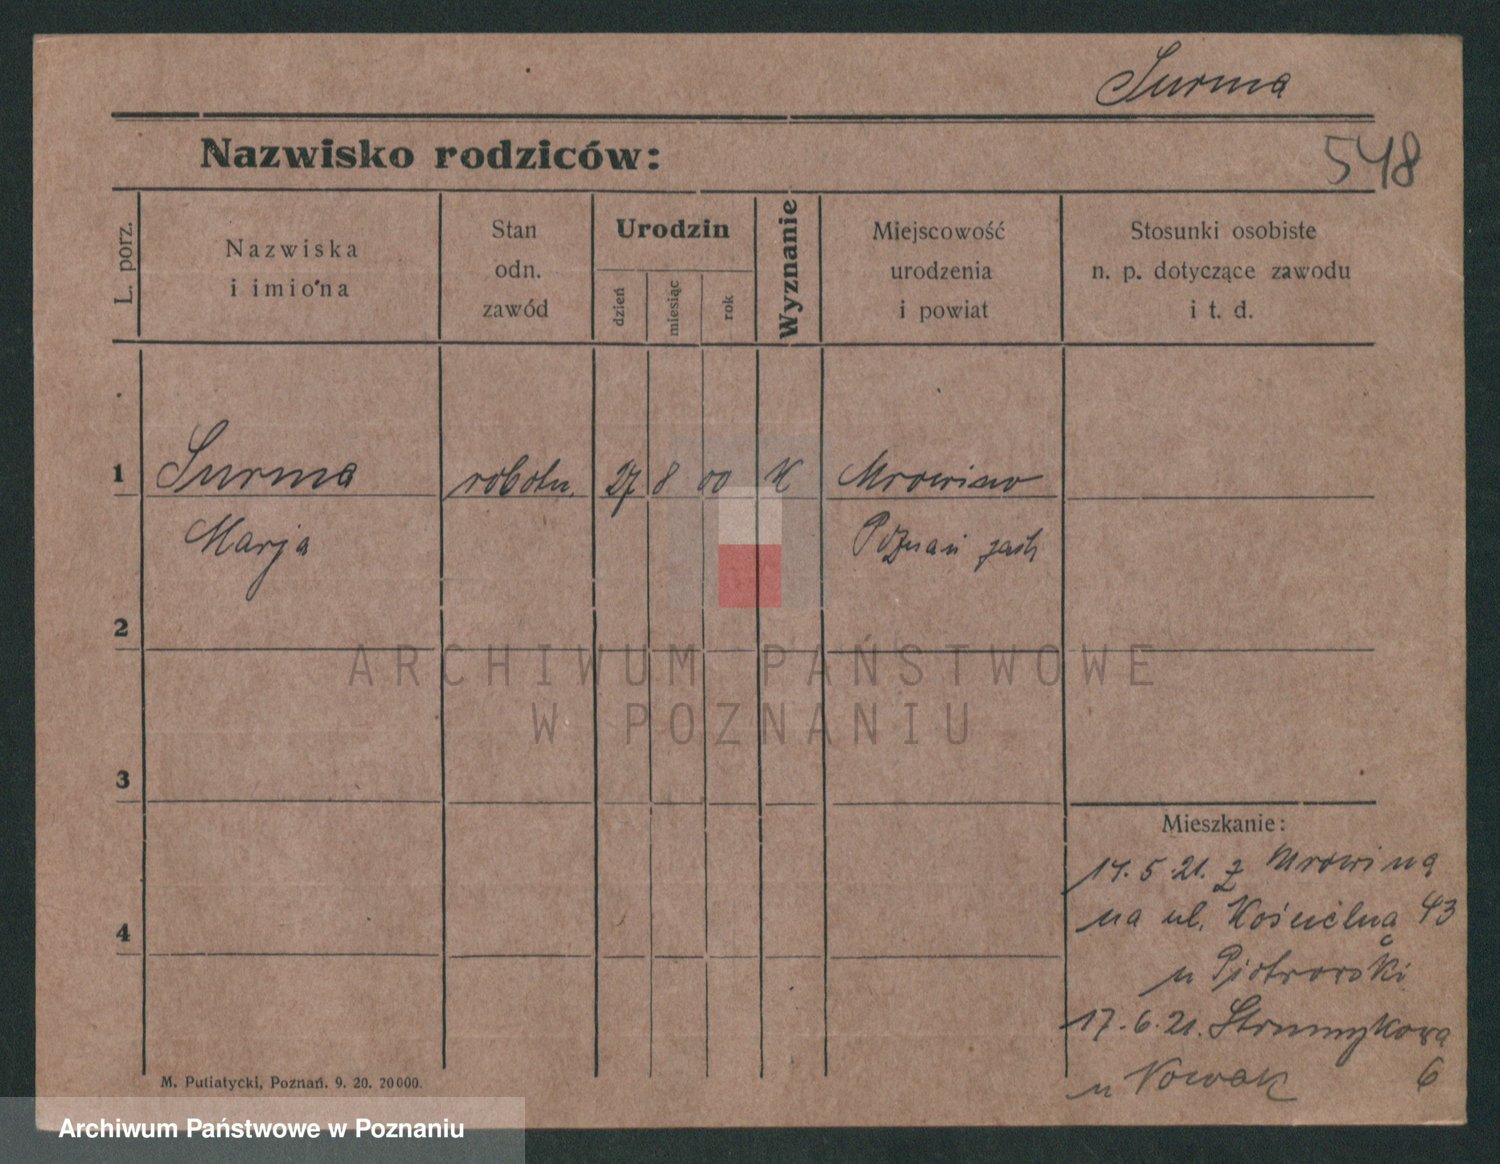 Surma
Nazwisko rodziców:
548
L. porz.
Nazwiska
i imiona
Stan
odn.
zawód
Urodzin
dzień
miesiąc
rok
Wyznanie
Miejscowość
urodzenia
i powiat
Stosunki osobiste
n. p. dotyczące zawodu
i t. d.
1 Surma robotn. 27 8 00 K Mrowino
Marja Poznań zach
2
3
4
Mieszkanie:
14.5.21. z Mrowina
na ul. Kościelną 43
u Piotrowski
17.6.21. Strumykowa
u Nowak 6
M. Putiatycki, Poznań. 9. 20. 20000.
ARCHIWUM PAŃSTWOWE
W POZNANIU
Archiwum Państwowe w Poznaniu